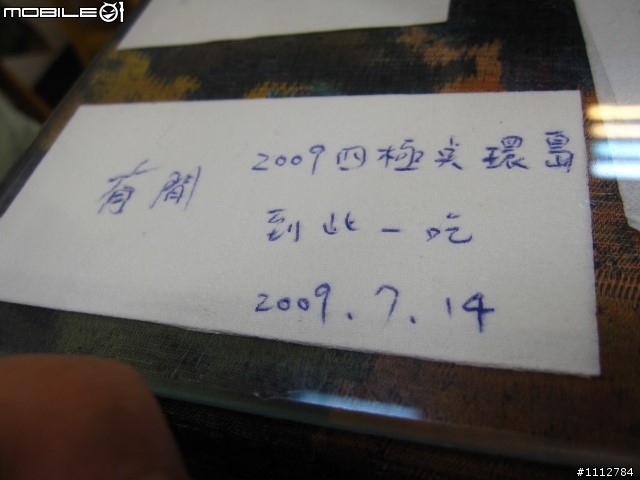 MOBILE01
2009四極点環島
到此一吃
2009.7.14
有間
#1112784